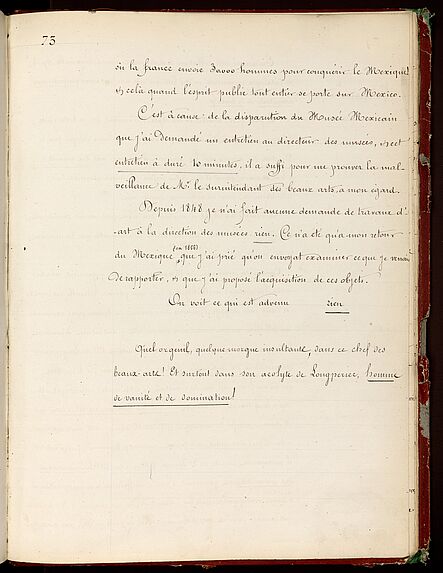 75
où la france envoie 30000 hommes pour conquérir le Mexique
et cela quand l'esprit public tout entier se porte sur Mexico.
C'est à cause de la disparution du Musée Mexicain
que j'ai demandé un entretien au directeur des musées, et cet
entretien à duré 10 minutes, il a suffi pour me prouver la mal-
veillance de Mr. le surintendant des beaux arts, à mon egard.
Depuis 1848 je n'ai fait aucune demande de travaux d'
-art à la direction des musées rien. Ce n'a été qu'a mon retour
du Mexique, (en 1858) que j'ai prié qu'on envoyat examiner ce que je venais
de rapporter, et que j'ai proposé l'acquisition de ces objets.
On voit ce qui est advenu rien
Quel orgeuil, quelque morgue insultante, dans ce chef des
beaux-arts! Et surtout dans son acolyte de Longperier, homme
de vanité et de domination!